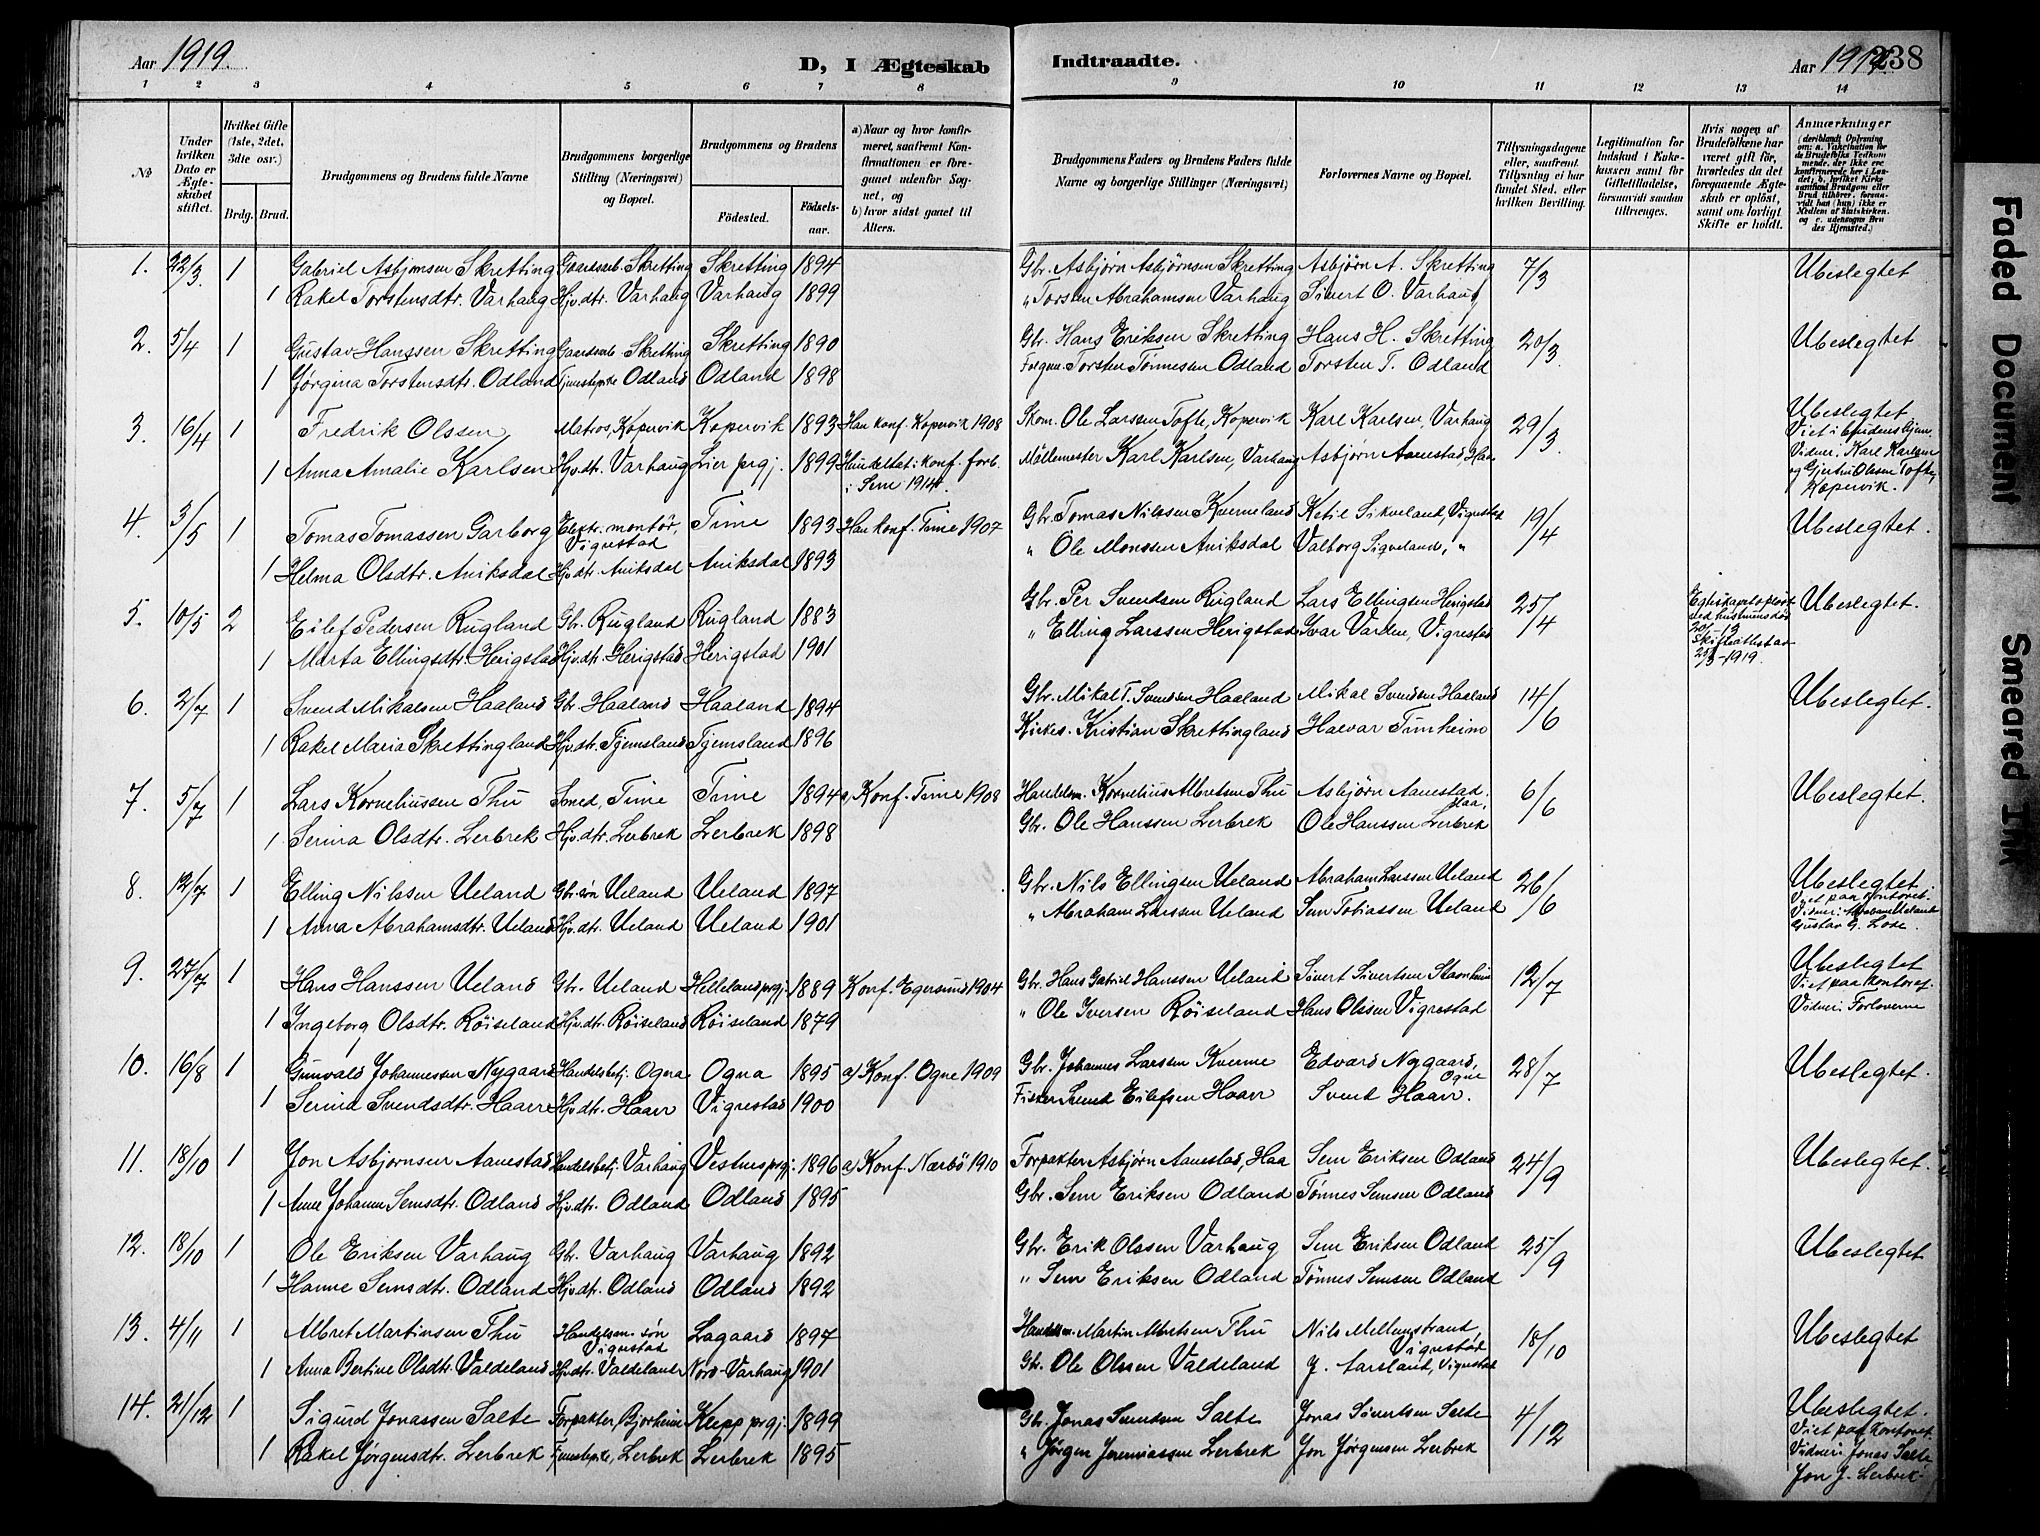 Aar 1919.
D, I Ægteskab Indtraadte.
Aar 1919. 238
1 2 3 4 5 6 7 8 9 10 11 12 13 14
№
Under hvilken Dato er Ægteskabet stiftet.
Hvilket Gifte (1ste, 2det, 3die osr.)
Brdg. Brud.
Brudgommens og Brudens fulde Navne
Brudgommens borgerlige Stilling (Næringsvei) og Bopæl.
Brudgommens og Brudens
Födested. Födselsaar.
a) Naar og hvor konfirmeret, saafremt Konfirmationen er foregaaet udenfor Sognet, og
b) hvor sidst gaaet til Alters.
Brudgommens Faders og Brudens Faders fulde Navne og borgerlige Stillinger (Næringsvei)
Forlovernes Navne og Bopæl.
Tillysningsdagene eller, saafremt Tillysning ei har fundet Sted, efter hvilken Bevilling.
Legitimation for Indskud i Enkekassen samt for Giftetilladelse, forsaavidt saadan tiltrænges.
Hvis nogen af Brudefolkene har været gift för, hvorledes da det foregaaende Ægteskab er oplöst, samt om lovligt Skifte er holdt.
Anmærkninger
1. 22/3. 1 Gabriel Asbjørnsen Skretting Gaardarb. Skretting Skretting 1894 Gbr. Asbjørn Asbjørnsen Skretting Asbjørn A. Skretting 7/3 Ubeslegtet
1 Rakel Torstensdtr. Varhaug Hjv.dtr. Varhaug Varhaug 1899 " Torsten Abrahamsen Varhaug Sivert O. Varhaug
2. 5/4 1 Gustav Hanssen Skretting Gaardarb. Skretting Skretting 1890 Gbr. Hans Eriksen Skretting Hans H. Skretting 20/3. Ubeslegtet
1 Jørgina Torstensdtr. Odland Tjenestepike Odland Odland 1898 Torsten Tønnesen Odland Torsten T. Odland
3. 16/4 1 Fredrik Olssen Matros, Kopervik Kopervik 1893 Han konf. Kopervik 1908 Skom. Ole Larssen Tofte, Kopervik Karl Karlsen, Varhaug 29/3. Ubeslegtet.
Viet i brudens hjem.
Vidner: Karl Karlsen
1 Anna Amalie Karlsen Hjv.dtr. Varhaug Lier prgj. 1899 Hun deltat i konf. forb. Möllemester Karl Karlsen, Varhaug Asbjørn Aanestad, Haa
i Sem 1914.
og Gjertin Olssen Tofte,
Kopervik.
4. 3/5 1 Tomas Tomassen Garborg Elektr. montør, Vigrestad Time 1893 Han konf. Time 1907 Gbr. Tomas Nilssen Kverneland Ketil Sikveland, Vigrestad 19/4 Ubeslegtet.
1 Helma Olsdtr. Aniksdal Hjv.dtr. Aniksdal Aniksdal 1893 " Ole Monssen Aniksdal Valborg Sigveland, "
5. 10/5 2 Eilef Pedersen Rugland Gbr. Rugland Rugland 1883 Gbr. Per Svendsen Rugland Lars Ellingsen Herigstad 25/4 Ubeslegtet.
Egteskapet opløst
ved hustruens død
1 Marta Ellingsdtr. Herigstad Hjv.dtr. Herigstad Herigstad 1901 " Elling Larssen Herigstad Ivar Varden, Vigrestad
1919.
6. 2/7 1 Svend Mikalsen Haaland Gbr. Haaland Haaland 1894 Gbr. Mikal T. Svendsen Haaland Mikal Svendsen Haaland 14/6 Ubeslegtet.
1 Rakel Maria Skrettingland Hjv.dtr. Tjemsland Tjemsland 1896 Kirkes. Kristian Skrettingland Halvar Tunheim
7. 5/7 1 Lars Korneliussen Thu Smed, Time Time 1894 a) Konf. Time 1908 Handelsm. Kornelius Albretsen Thu Asbjørn Aanestad, Haa, 6/6 Ubeslegtet.
1 Serina Olsdtr. Lerbrek Hjv.dtr. Lerbrek Lerbrek 1898 Gbr. Ole Hanssen Lerbrek Ole Hanssen Lerbrek
8. 12/7 1 Elling Nilssen Ueland Gbr.søn Ueland Ueland 1897 Gbr. Nils Ellingsen Ueland Abraham Larssen Ueland 26/6 Ubeslegtet.
Viet paa kontoret.
1 Anna Abrahamsdtr. Ueland Hjv.dtr. Ueland Ueland 1901 " Abraham Larssen Ueland Sem Tobiassen Ueland
Vidner: Abraham Ueland
Gustav G. Lode.
9. 27/7 1 Hans Hanssen Ueland Gbr. Ueland Helleland prgj. 1889 Konf. Egersund 1904 Gbr. Hans Gabriel Hanssen Ueland Sivert Sivertsen Stavnheim 12/7 Ubeslegtet
Viet paa kontoret.
1 Ingeborg Olsdtr. Röiseland Hjv.dtr. Röiseland Röiseland 1879 " Ole Iversen Röiseland Hans Olssen Vigrestad
Vidner: Forloverne
10. 16/8 1 Gunvald Johannessen Nygaard Handelsbetj. Ogna Ogna 1895 a) Konf. Ogne 1909 Gbr. Johannes Larssen Kverme Edvard Nygaard, Ogne 28/7 Ubeslegtet.
1 Serina Svendsdtr. Haarr Hjv.dtr. Haarr Vigrestad 1900 Fisker Svend Eilefsen Haarr Svend Haarr.
11. 18/10 1 Jon Asbjørnsen Aanestad Handelsbetj. Varhaug Vestnes prgj. 1896 a) Konf. Nærbö 1910 Forpakter Asbjørn Aanestad, Haa Sem Eriksen Odland 24/9 Ubeslegtet.
1 Anne Johanne Semsdtr. Odland Hjv.dtr. Odland Odland 1895 Gbr. Sem Eriksen Odland Tønnes Semsen Odland
12. 18/10 1 Ole Eriksen Varhaug Gbr. Varhaug Varhaug 1892 Gbr. Erik Olssen Varhaug Sem Eriksen Odland 25/9 Ubeslegtet
1 Hanne Semsdtr. Odland Hjv.dtr. Odland Odland 1892 " Sem Eriksen Odland Tønnes Semsen Odland
13. 4/11 1 Albret Martinsen Thu Handelsm. søn Vigrestad Lagaard 1897 Handelsm. Martin Albretsen Thu Nils Mellemstrand, Vigrestad 18/10 Ubeslegtet
1 Anna Bertine Olsdtr. Valdeland Hjv.dtr. Valdeland Nord-Varhaug 1901 Gbr. Ole Olssen Valdeland J. Aarsland, Vigrestad
14. 21/12 1 Sigurd Jonassen Salte Forpakter, Bjorheim Klepp prgj. 1899 Gbr. Jonas Svendsen Salte Jonas Sivertsen Salte 4/12 Ubeslegtet.
Viet paa kontoret.
1 Rakel Jørgensdtr. Lerbrek Tjenestepike, Lerbrek Lerbrek 1895 " Jørgen Jeremiassen Lerbrek Jon Jørgensen Lerbrek
Vidner: Jonas Salte
Jon J. Lerbrek.
Faded Document
Smeared Ink